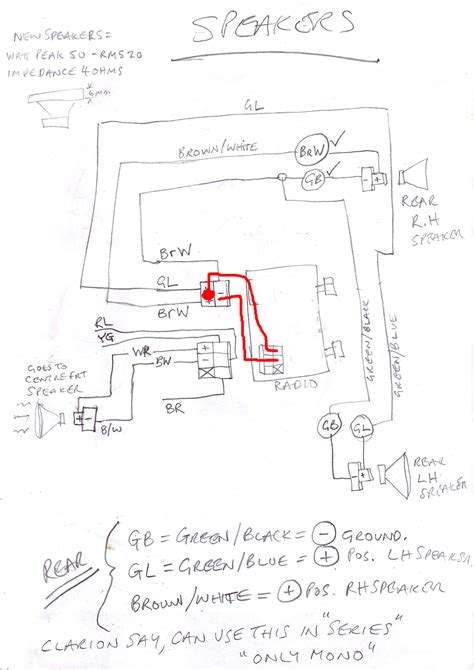 SPEAKERS
NEW SPEAKERS =
WATT PEAK 50 - RMS 20
IMPEDANCE 4 OHMS
6mm
GL
BROWN/WHITE
BRW
GB
REAR
R.H
SPEAKER
BrW
GL
BrW
RL
YG
WR
BW
GOES TO
CENTRE FRT
SPEAKER
B/W
BR
RADIO
GREEN/BLACK
GREEN/BLUE
GB
GL
REAR
LH
SPEAKER
REAR
GB = GREEN/BLACK = - GROUND.
GL = GREEN/BLUE = + POS. LH SPEAKER
BROWN/WHITE = + POS. RH SPEAKER
CLARION SAY, CAN USE THIS IN "SERIES"
"ONLY MONO"